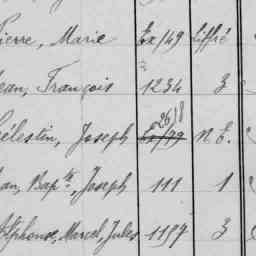 Pierre, Marie Ex/49 Liffré
Jean, François 1234 3
2618
Célestin, Joseph Ex/99 N.E.
Jean, Bapte, Joseph 111 1
Alphonse, Marcel, Jules 1197 3